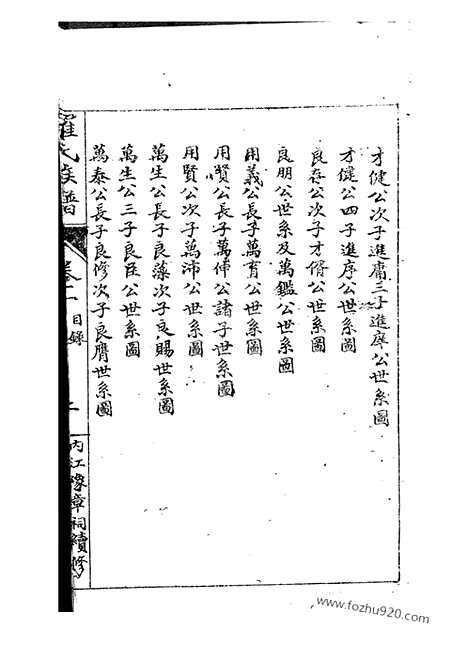 才健公次子進庸三子進庠公世系圖
才健公四子進序公世系圖
良存公次子才傦公世系圖
良朋公世系及萬鑑公世系圖
用義公長子萬育公世系圖
用賢公長子萬俸公諸子世系圖
用賢公次子萬沛公世系圖
萬生公長子良藻次子良賜世系圖
萬生公三子良臣公世系圖
萬泰公長子良修次子良膺世系圖
羅氏族譜
卷二
目錄
二
內江豫章祠續修
www.fozhu920.com